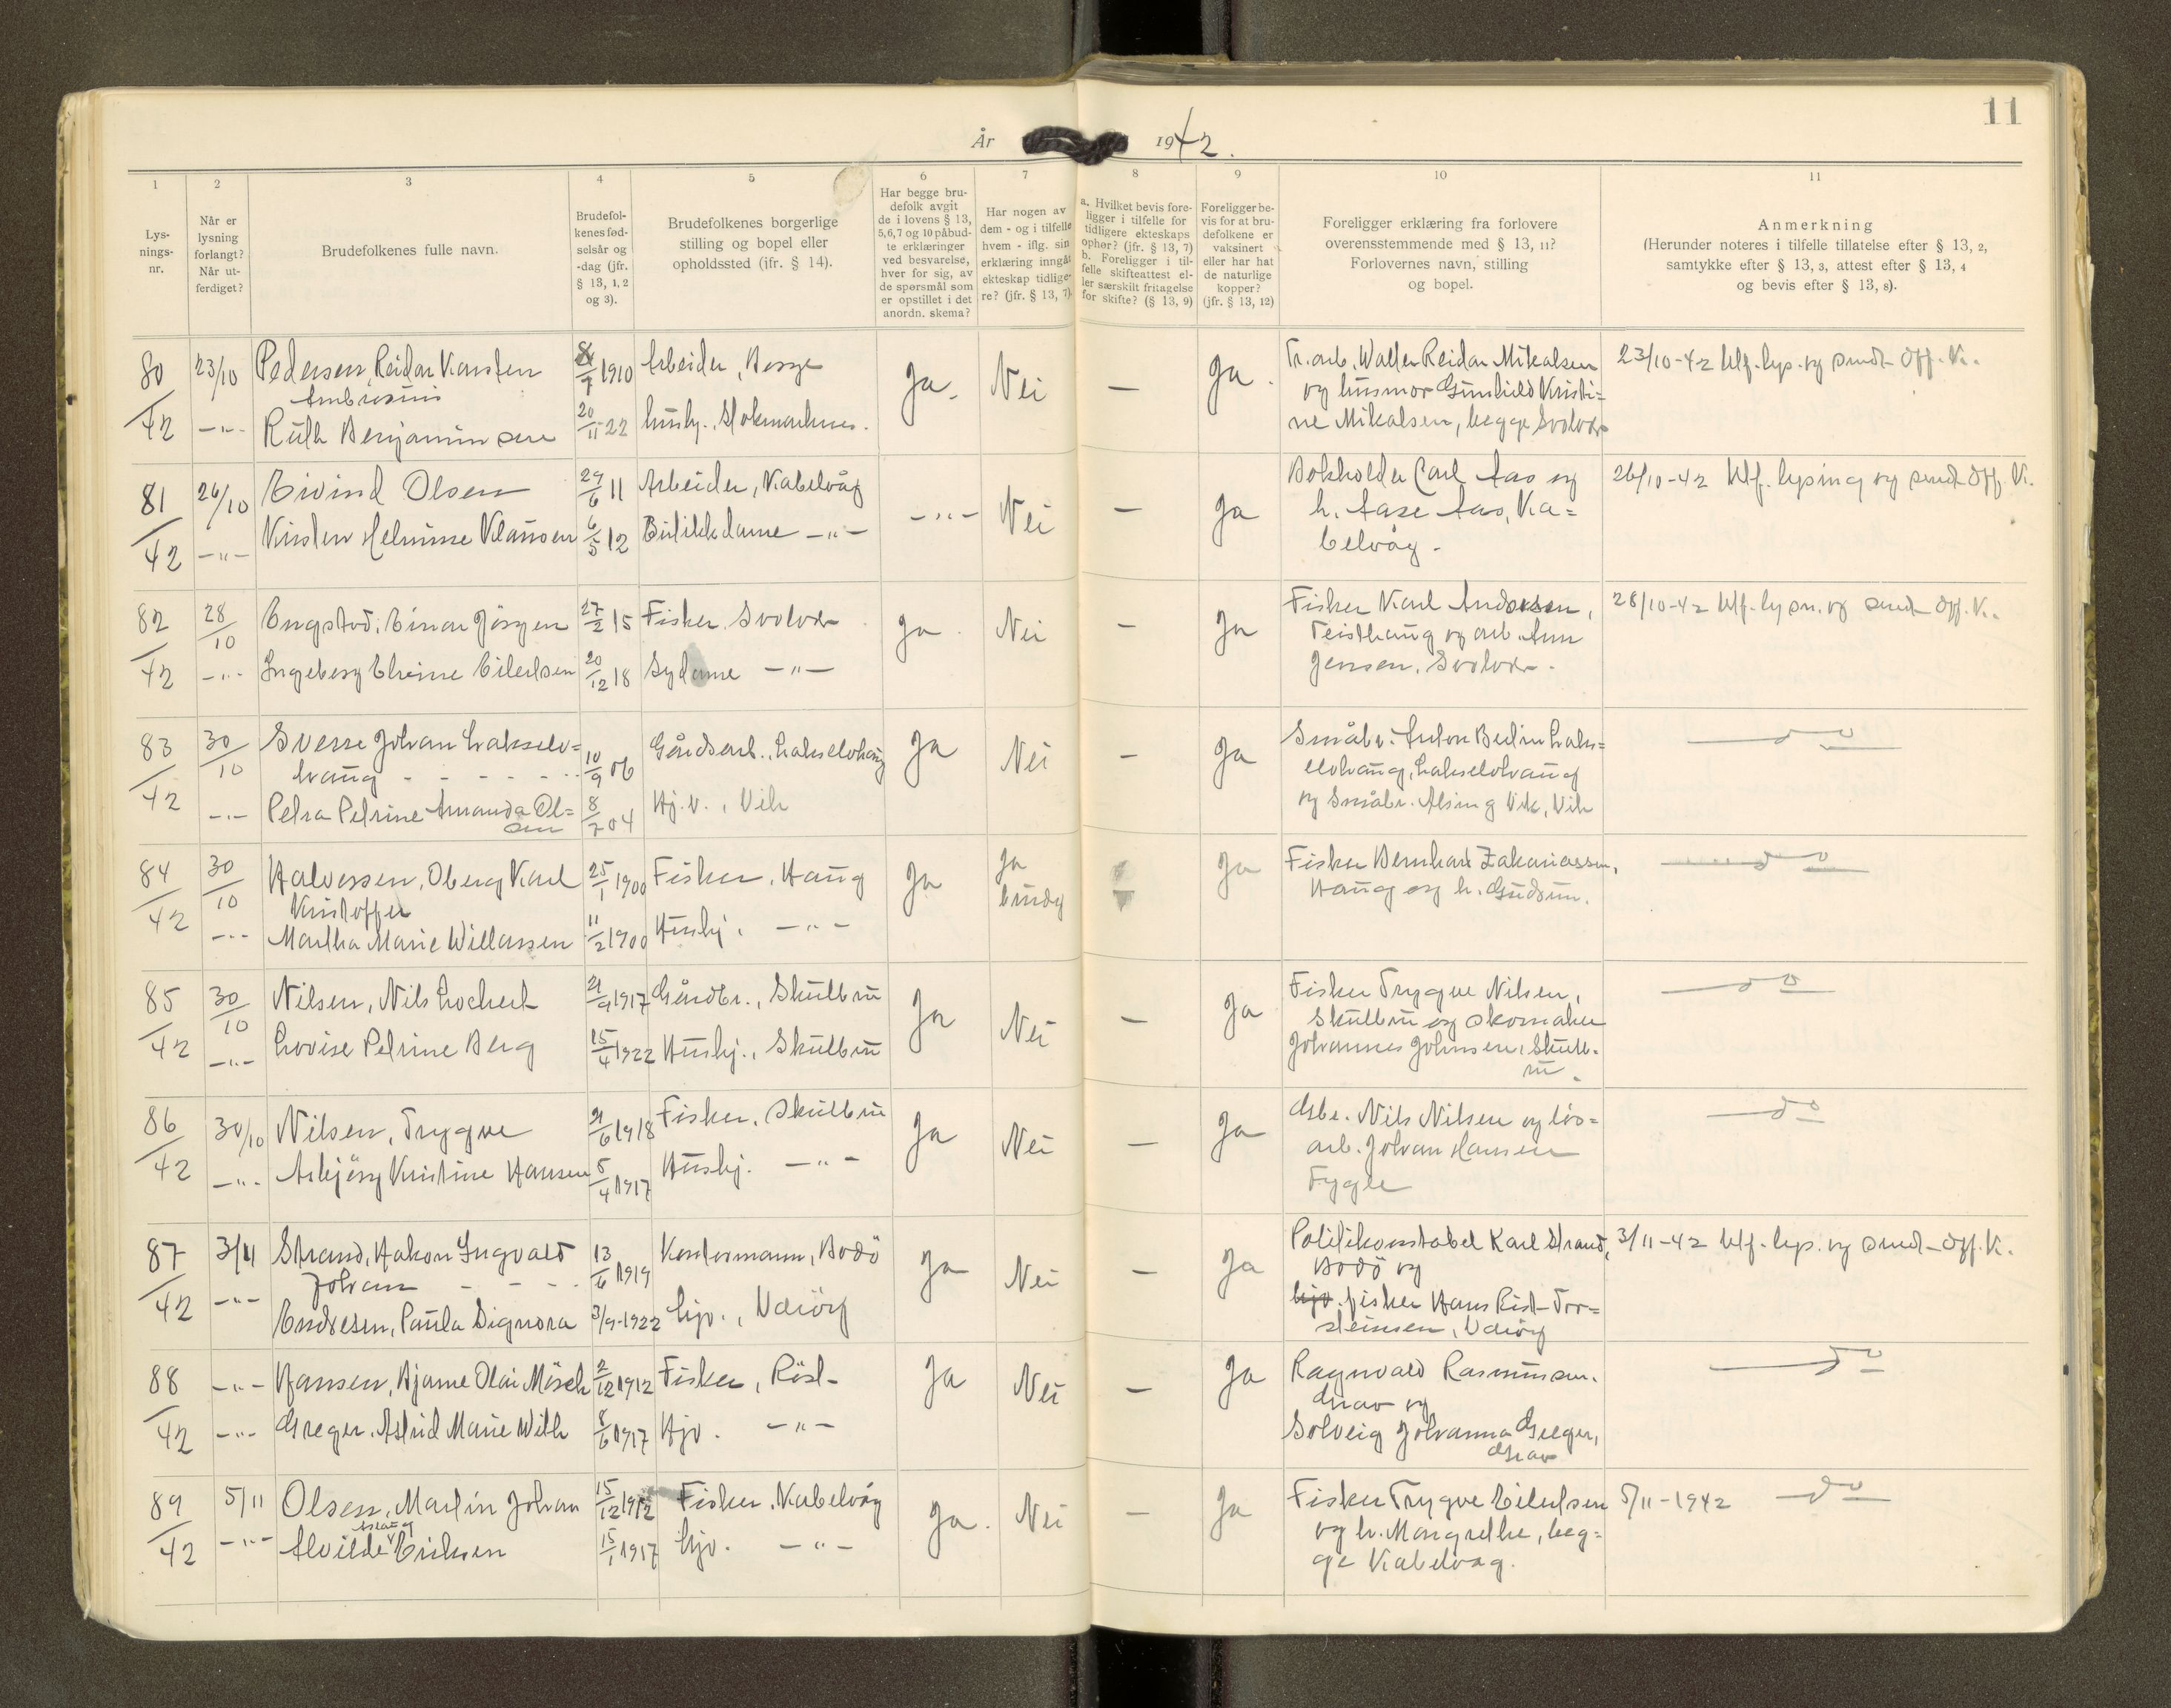 11
År 1942.
1 2 3 4 5 6 7 8 9 10 11
Lys-
nings-
nr.
Når er
lysning
forlangt?
Når ut-
ferdiget?
Brudefolkenes fulle navn.
Brudefol-
kenes fød-
selsår og
-dag (jfr.
§ 13, 1, 2
og 3).
Brudefolkenes borgerlige
stilling og bopel eller
opholdssted (jfr. § 14).
Har begge bru-
defolk avgit
de i lovens § 13,
5, 6, 7 og 10 påbud-
te erklæringer
ved besvarelse,
hver for sig, av
de spørsmål som
er opstillet i det
anordn. skema?
Har nogen av
dem - og i tilfelle
hvem - iflg. sin
erklæring inngåt
ekteskap tidlige-
re? (jfr. § 13, 7)
a. Hvilket bevis fore-
ligger i tilfelle for
tidligere ekteskaps
ophør? (jfr. § 13, 7)
b. Foreligger i til-
felle skifteattest el-
ler særskilt fritagelse
for skifte? (§ 13, 9)
Foreligger be-
vis for at bru-
defolkene er
vaksinert
eller har hat
de naturlige
kopper?
(jfr. § 13, 12)
Foreligger erklæring fra forlovere
overensstemmende med § 13, 11?
Forlovernes navn, stilling
og bopel.
Anmerkning
(Herunder noteres i tilfelle tillatelse efter § 13, 2,
samtykke efter § 13, 3, attest efter § 13, 4
og bevis efter § 13, 8).
80/42 23/10 Pedersen, Reidar Karsten 8/7 1910 Arbeider, Borge Ja. Nei — Ja. Tr.arb. Walter Reidar Mikalsen 23/10-42 Utf. lys. og sendt Off. K.
Ambrosius og husmor Gunhild Kristi=
—"— Ruth Benjaminsen 20/11-22 hushj., Stokmarknes. ne Mikalsen, begge Svolvær
81/42 26/10 Eivind Olsen 29/6 11 Arbeider, Kabelvåg —"— Nei — Ja Bokholder Carl Aas og 26/10-42 Utf. lysing og sendt Off. K.
—"— Kirsten Helmine Klausen 6/5 12 Butikkdame —"— h. Aase Aas, Ka=
belvåg.
82/42 28/10 Engstad, Einar Jörgen 27/2 15 Fisker, Svolvær Ja. Nei — Ja Fisker Karl Andersen, 28/10-42 Utf. lysn. og sendt Off. K.
—"— Ingeborg Elvine Eilertsen 20/12 18 Sydame —"— Teisthaug og arb. Arn
Jensen, Svolvær.
83/42 30/10 Sverre Johan Lakselv= Gårdsarb., Lakselvhaug Ja Nei — Ja Småbr. Anton Berlin Laks= — do
haug 10/9 06 elvhaug, Lakselvhaug
—"— Petra Petrine Amanda Ol= 8/7 04 Hj.v., Vik og Småbr. Alsing Vik, Vik
sen
84/42 30/10 Halvorsen, Oberg Karl 25/1 1900 Fisker, Haug Ja Ja Ja Fisker Bernhard Zakariassen, — do
Kristoffer brudg Haug og h. Gudrun.
—"— Martha Marie Willassen 11/2 1900 Hushj. —"—
85/42 30/10 Nilsen, Nils Lockert 21/9 1917 Gårdbr., Skulbru Ja Nei — Ja Fisker Trygve Nilsen, — do
—"— Lovise Petrine Berg 15/4 1922 Hushj., Skulbru Skulbru og skomaker
Johannes Johnsen, Skulb-
ru.
86/42 30/10 Nilsen, Trygve 21/6 1918 Fisker, Skulbru Ja Nei — Ja Gbr. Nils Nilsen og lös= — do
—"— Asbjörg Kristine Hansen 5/4 1917 Hushj. —"— arb. Johan Hansen
Fygle
87/42 3/11 Strand, Hakon Ingvald 13/6 1919 Kontormann, Bodö Ja Nei — Ja Politikonstabel Karl Strand, 3/11-42 Utf. lys. og sendt Off. K.
Johan Bodö og
—"— Endresen, Paula Signora 3/9-1922 hjv., Væröy hjv. fisker Hans Rist Tor=
steinsen, Væröy
88/42 —"— Hansen, Hjarne Olai Mörch 2/12 1912 Fisker, Röst Ja Nei — Ja Ragnvald Rasmussen, — do
Grav og
—"— Greger, Astrid Marie With 8/6 1917 Hjv. —"— Solveig Johanna Greger,
Grav
89/42 5/11 Olsen, Martin Johan 15/12 1912 Fisker, Kabelvåg Ja. Nei — Ja Fisker Trygve Eilertsen 5/11-1942 — do
Aslaug og h. Margrethe, beg=
—"— Alvilde Eriksen 15/1 1917 hjv. —"— ge Kabelvåg.